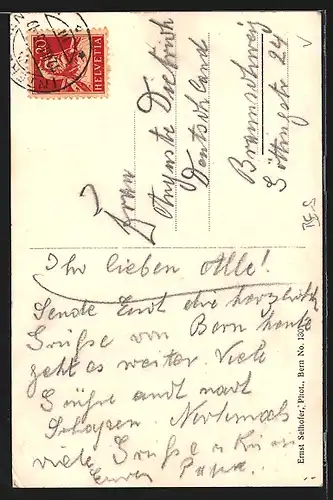 20
HELVETIA
Frau
Auguste Dietrich
Deutschland
Braunschweig
Göttingstr 24
Ihr lieben Alle!
Sende Euch die herzlichst
Grüße von Bern heute
geht es weiter. Viele
Grüße auch nach
Nochmals
viele Grüße u Küsse
Euer Papa.
Ernst Selhofer, Phot., Bern No. 130